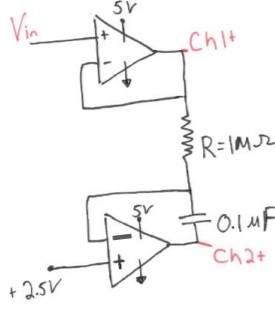 5V
Vin
+
-
Ch1+
R=1MΩ
5V
0.1µF
-
+
Ch2+
+2.5V